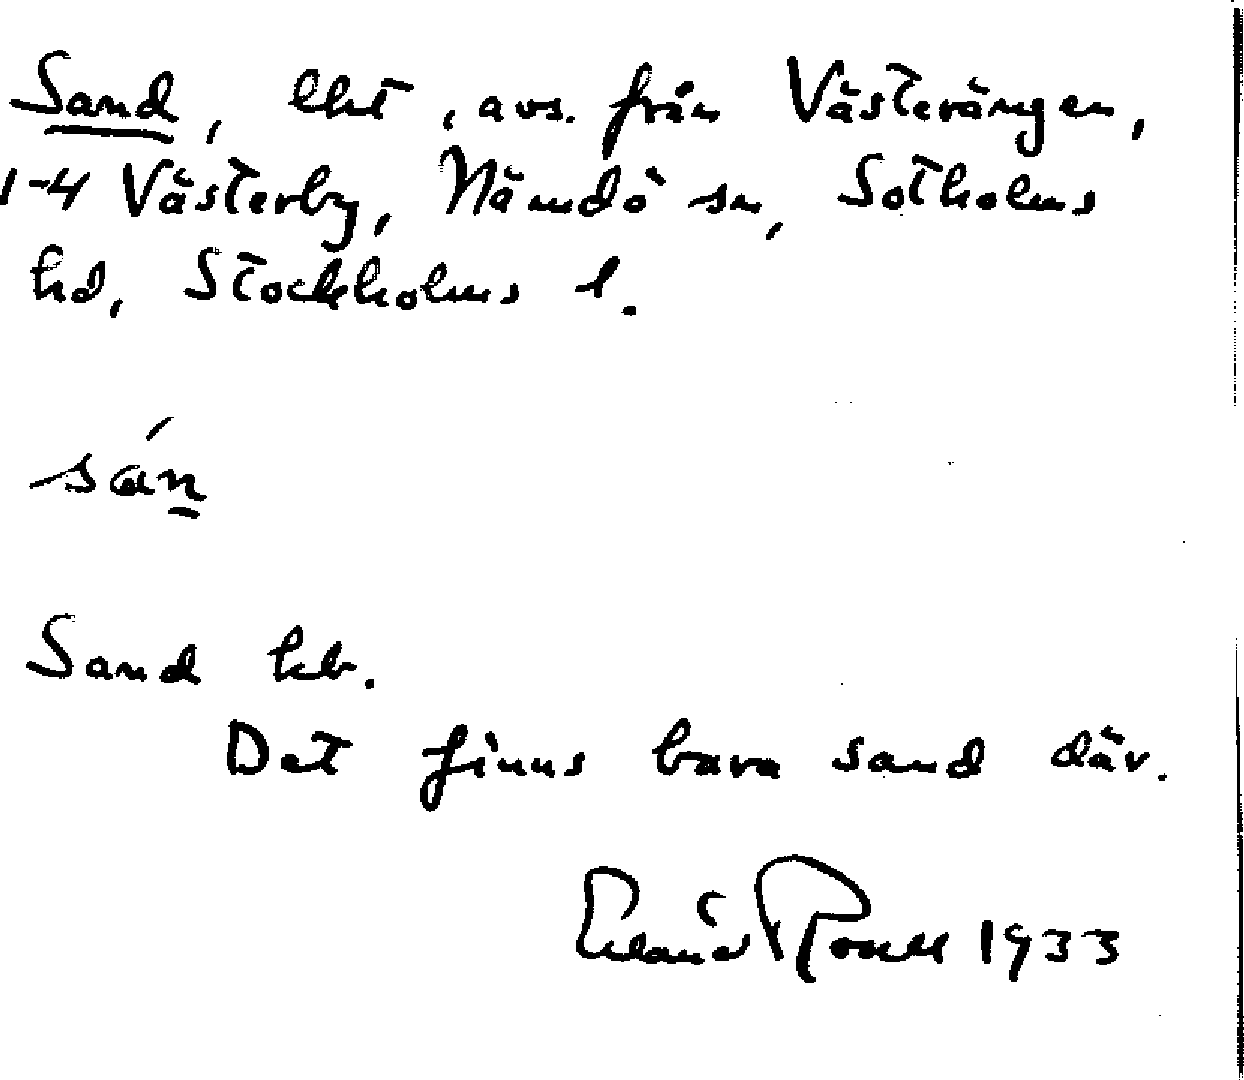 Sand, lht, avs. från Västerängen,
1-4 Västerby, Nämdö sn, Sotholms
hd, Stockholms l.
sán
Sand kb.
Det finns bara sand där.
Erland Rosell 1933